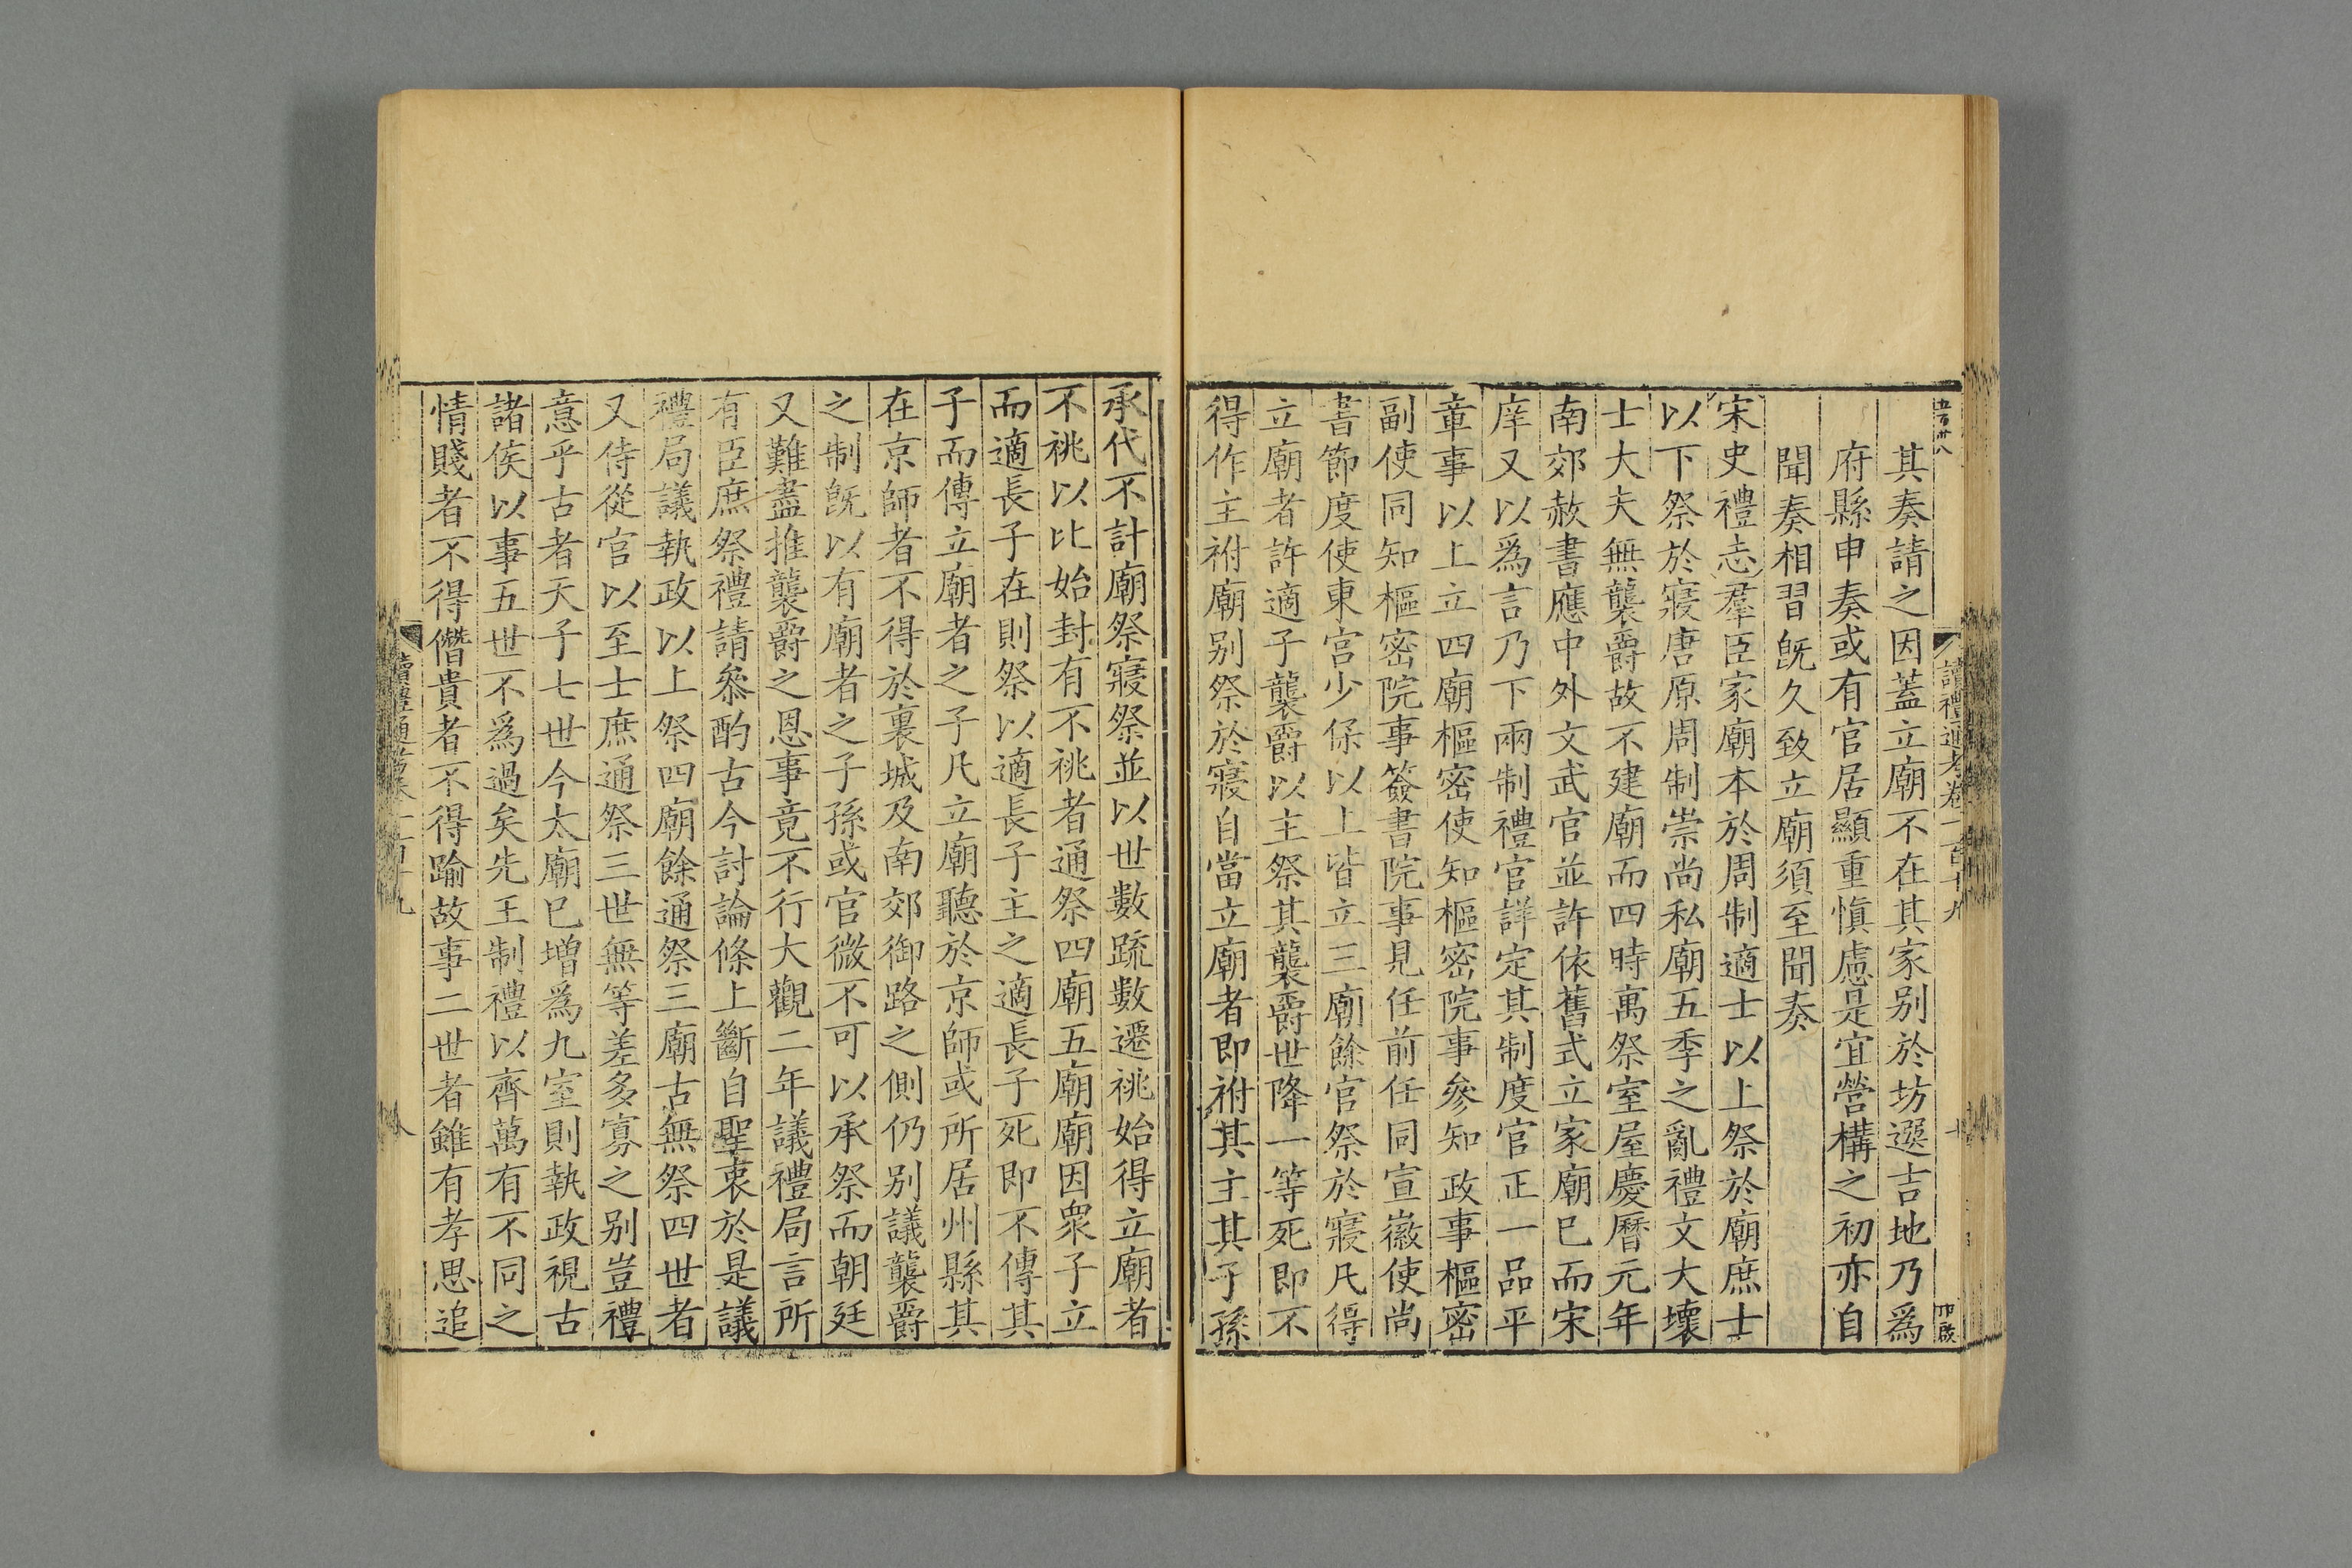 五百卅八
讀禮通考卷一百十九
其奏請之因蓋立廟不在其家别於坊選吉地乃爲
府縣申奏或有官居顯重慎慮是宜營構之初亦自
聞奏相習旣久致立廟須至聞奏
宋史禮志羣臣家廟本於周制適士以上祭於廟庶士
以下祭於寢唐原周制崇尚私廟五季之亂禮文大壞
士大夫無襲爵故不建廟而四時寓祭室屋慶曆元年
南郊赦書應中外文武官並許依舊式立家廟已而宋
庠又以爲言乃下兩制禮官詳定其制度官正一品平
章事以上立四廟樞密使知樞密院事參知政事樞密
副使同知樞密院事簽書院事見任前任同宣徽使尚
書節度使東宮少保以上皆立三廟餘官祭於寢凡得
立廟者許適子襲爵以主祭其襲爵世降一等死即不
得作主祔廟别祭於寢自當立廟者即祔其主其子孫
承代不計廟祭寢祭並以世數疏數遷祧始得立廟者
不祧以比始封有不祧者通祭四廟五廟廟因衆子立
而適長子在則祭以適長子主之適長子死即不傳其
子而傳立廟者之子凡立廟聽於京師或所居州縣其
在京師者不得於裏城及南郊御路之側仍别議襲爵
之制旣以有廟者之子孫或官微不可以承祭而朝廷
又難盡推襲爵之恩事竟不行大觀二年議禮局言所
有臣庶祭禮請叅酌古今討論條上斷自聖衷於是議
禮局議執政以上祭四廟餘通祭三廟古無祭四世者
又侍從官以至士庶通祭三世無等差多寡之别豈禮
意乎古者天子七世今太廟已增爲九室則執政視古
諸侯以事五世不爲過矣先王制禮以齊萬有不同之
情賤者不得僭貴者不得踰故事二世者雖有孝思追
讀禮通考卷一百十九